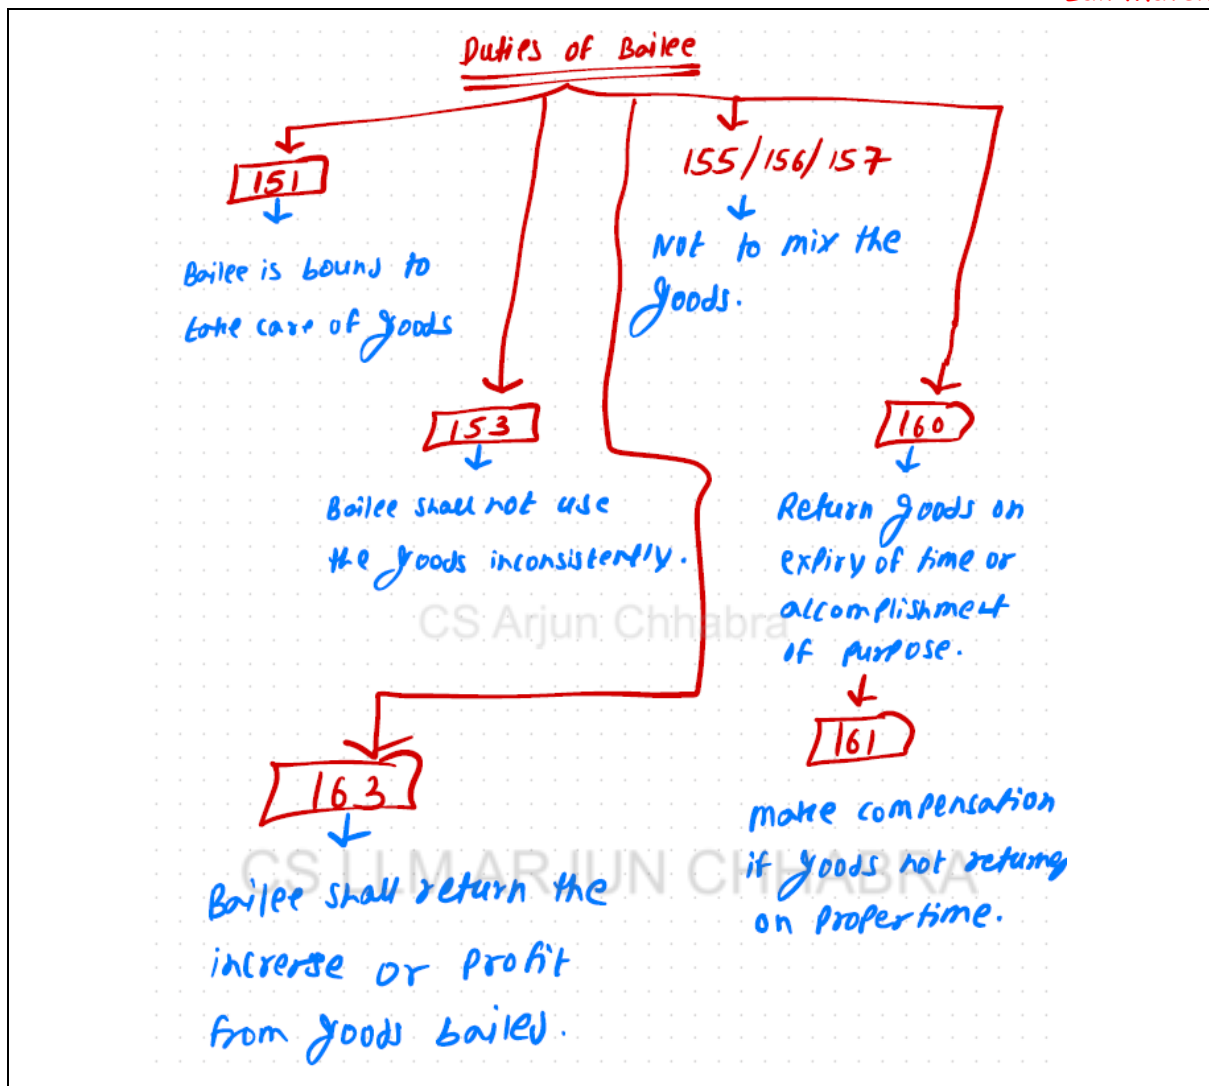 Duties of Bailee
151
Bailee is bound to
take care of goods
153
Bailee shall not use
the goods inconsistently.
155/156/157
Not to mix the
goods.
160
Return goods on
expiry of time or
accomplishment
of purpose.
161
make compensation
if goods not returned
on proper time.
163
Bailee shall return the
increrse or profit
from goods bailed.
CS Arjun Chhabra
CS LLM ARJUN CHHABRA